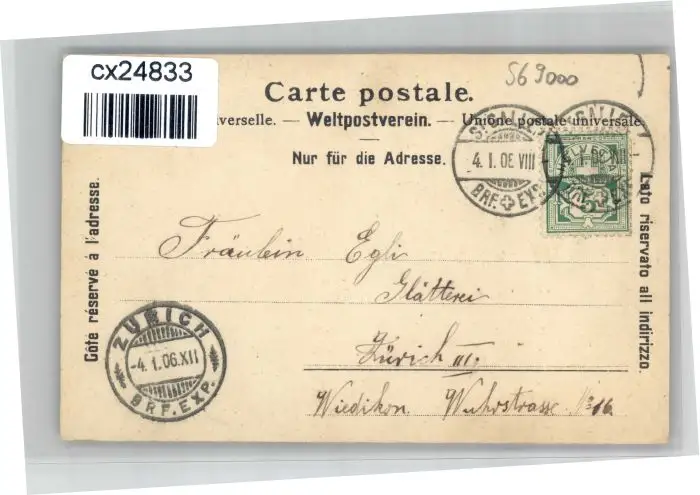 cx24833
569000
Carte postale.
verselle. — Weltpostverein. — Unione postale universale
Nur für die Adresse.
Côté réservé à l'adresse.
Lato riservato all indirizzo.
ST. GALLEN
4.I.06 VIII
BRF. EXP.
Fräulein Egli
Glätterei
Zürich III,
Wiedikon. Wuhrstrasse No 16
ZÜRICH
-4.1.06.XII
BRF. EXP.